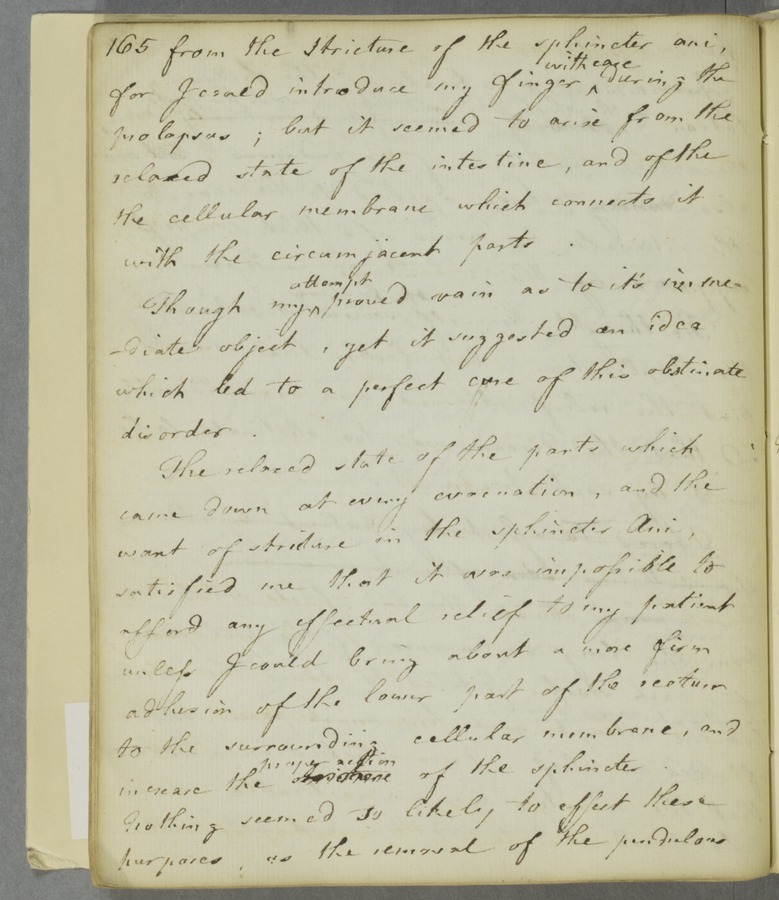 165 from the stricture of the sphincter ani,
for I could introduce my finger ^ with ease during the
prolapsus ; but it seemed to arise from the
relaxed state of the intestine, and of the
the cellular membrane which connects it
with the circumjacent parts .
Though my ^ attempt proved vain as to it's imme-
-diate object , yet it suggested an idea
which led to a perfect cure of this obstinate
disorder .
The relaxed state of the parts which
came down at every evacuation , and the
want of stricture in the sphincter Ani,
satisfied me that it was impossible to
afford any effectual relief to my patient
unless I could bring about a more firm
adhesion of the lower part of the rectum
to the surrounding cellular membrane, and
increase the proper action of the sphincter .
Nothing seemed so likely to effect these
purposes , as the removal of the pendulous